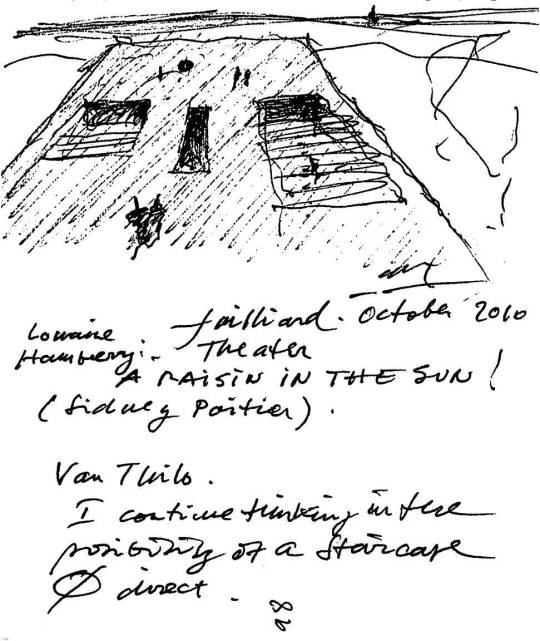 Juilliard. October 2010
Lorraine
Hansberry: Theater
A RAISIN IN THE SUN!
(Sidney Poitier).
Van Thilo.
I continue thinking in the
posibility of a staircase
direct.
28